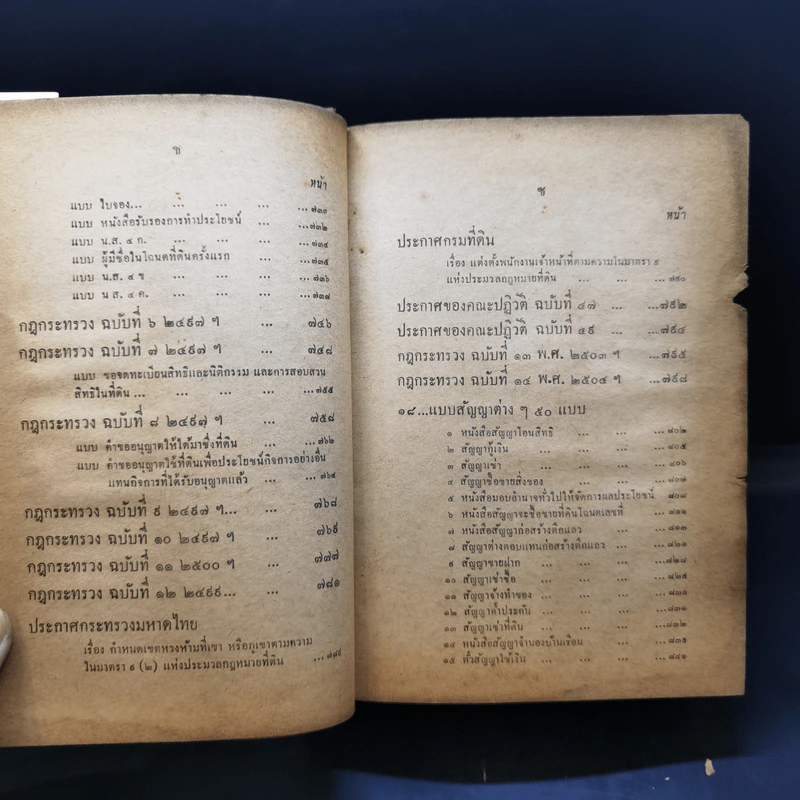 ช
หน้า
แบบ ใบจอง... ... ... ... ...๗๓๐
แบบ หนังสือรับรองการทำประโยชน์ ... ...๗๓๒
แบบ น.ส. ๔ ก. ... ... ... ...๗๓๔
แบบ ผู้มีชื่อในโฉนดที่ดินครั้งแรก ... ...๗๓๕
แบบ น.ส. ๔ ข ... ... ... ...๗๓๖
แบบ น ส. ๔ ค. ... ... ... ...๗๓๙
กฎกระทรวง ฉบับที่ ๖ ๒๔๙๗ ฯ ... ...๗๔๖
กฎกระทรวง ฉบับที่ ๗ ๒๔๙๗ ฯ ... ...๗๔๘
แบบ ขอจดทะเบียนสิทธิและนิติกรรม และการสอบสวน
สิทธิในที่ดิน ... ... ... ... ...๗๕๕
กฎกระทรวง ฉบับที่ ๘ ๒๔๙๗ ฯ ... ...๗๕๘
แบบ คำขออนุญาตให้ได้มาซึ่งที่ดิน ... ...๗๖๒
แบบ คำขออนุญาตใช้ที่ดินเพื่อประโยชน์กิจการอย่างอื่น
แทนกิจการที่ได้รับอนุญาตแล้ว ... ...๗๖๔
กฎกระทรวง ฉบับที่ ๙ ๒๔๙๗ ฯ... ...๗๖๘
กฎกระทรวง ฉบับที่ ๑๐ ๒๔๙๗ ฯ ...๗๖๙
กฎกระทรวง ฉบับที่ ๑๑ ๒๕๐๐ ฯ ...๗๗๗
กฎกระทรวง ฉบับที่ ๑๒ ๒๔๙๙... ...๗๘๑
ประกาศกระทรวงมหาดไทย
เรื่อง กำหนดเขตหวงห้ามที่เขา หรือภูเขาตามความ
ในมาตรา ๙ (๒) แห่งประมวลกฎหมายที่ดิน
ซ
หน้า
ประกาศกรมที่ดิน
เรื่อง แต่งตั้งพนักงานเจ้าหน้าที่ตามความในมาตรา ๙
แห่งประมวลกฎหมายที่ดิน ... ... ...๗๙๐
ประกาศของคณะปฏิวัติ ฉบับที่ ๔๗ ... ...๗๙๒
ประกาศของคณะปฏิวัติ ฉบับที่ ๔๙ ... ...๗๙๔
กฎกระทรวง ฉบับที่ ๑๓ พ.ศ. ๒๕๐๓ ฯ ...๗๙๕
กฎกระทรวง ฉบับที่ ๑๔ พ.ศ. ๒๕๐๔ ฯ ...๗๙๘
๑๘...แบบสัญญาต่าง ๆ ๕๐ แบบ
๑ หนังสือสัญญาโอนสิทธิ ... ... ...๘๐๒
๒ สัญญากู้เงิน ... ... ... ...๘๐๕
๓ สัญญาเช่า ... ... ... ...๘๐๖
๔ สัญญาซื้อขายสิ่งของ ... ... ...๘๐๗
๕ หนังสือมอบอำนาจทั่วไปให้จัดการผลประโยชน์ ๘๐๘
๖ หนังสือสัญญาจะซื้อขายที่ดินโฉนดเลขที่ ...๘๑๑
๗ หนังสือสัญญาก่อสร้างตึกแถว ... ...๘๑๓
๘ สัญญาต่างตอบแทนก่อสร้างตึกแถว ... ...๘๑๙
๙ สัญญาขายฝาก ... ... ...
๑๐ สัญญาเช่าซื้อ ... ... ... ...๘๒๕
๑๑ สัญญาจ้างทำของ ... ... ...๘๓๑
๑๒ สัญญาค้ำประกัน ... ... ...๘๓๑
๑๓ สัญญาเช่าที่ดิน ... ... ...๘๓๒
๑๔ หนังสือสัญญาจำนองบ้านเรือน ... ...๘๓๕
๑๕ ตั๋วสัญญาใช้เงิน ... ... ...๘๔๑